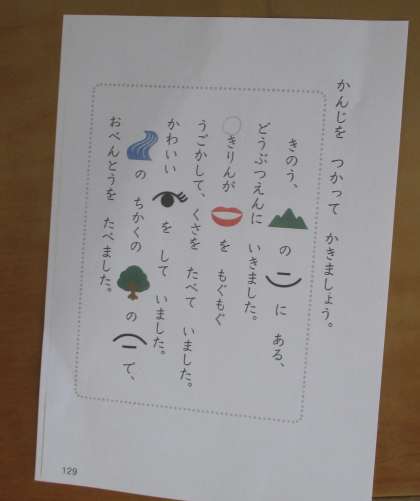 かんじを つかって かきましょう。
きのう、 の に ある、
どうぶつえんに いきました。
きりんが を もぐもぐ
うごかして、くさを たべて いました。
かわいい を して いました。
の ちかくの の て、
おべんとうを たべました。
129